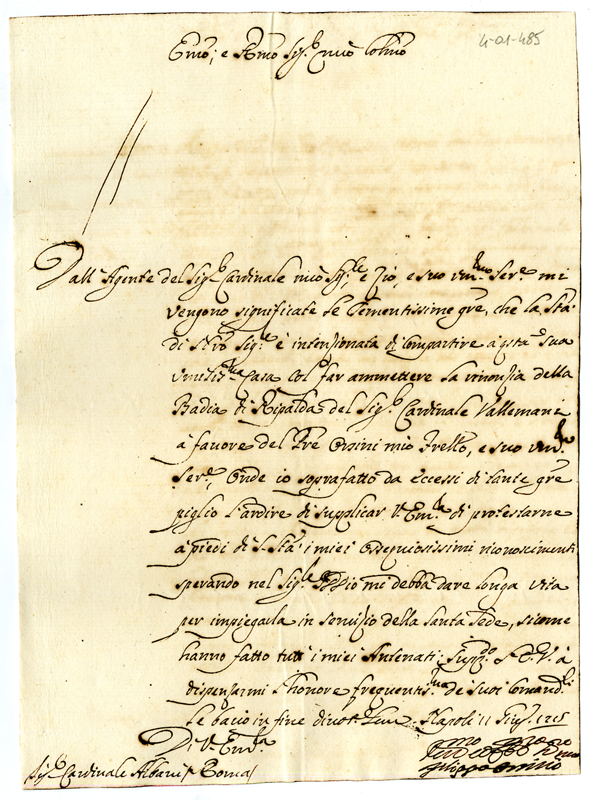 4-01-485
Emo, e Rmo Sigr mio Colmo
Dall'Agente del Sigr Cardinale mio Sigre, e Zio, e suo um.mo Sere mi
vengono significate le Clementissime gre, che la Stà
di N.ro Sigre è intenzionata di compartire a qsta sua
umilis.ma Casa col far ammettere la rinonzia della
Badia di Ripalda del Sigr Cardinale Vallemani
à favore del Pre Orsini mio Frello, e suo um.mo
Sere, Onde io soprafatto da eccessi di tante gre
piglio l'ardire di supplicar V. Em.za di protestarne
à piedi di S. Stà i miei ossequiosissimi riconoscimenti
sperando nel Sigr Iddio mi debba dare longa vita
per impiegarla in servizio della Santa Sede, sicome
hanno fatto tutti i miei Antenati. Suppco l'E. V. à
dispensarmi l'honore frequentis.mo de suoi comand.i
le bacio in fine divot.te Napoli 11 Giugo 1715
Di V. Em.za
Sigr Cardinale Albani Roma
Filippo Orsino